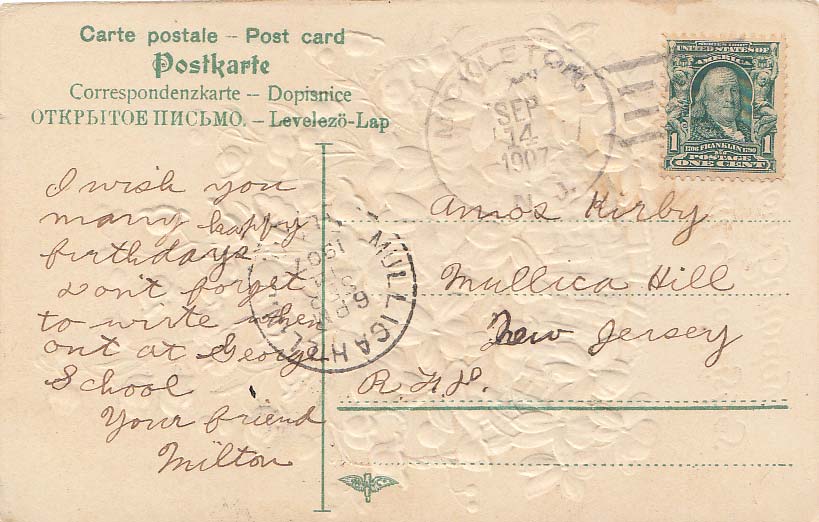 Carte postale – Post card
Postkarte
Correspondenzkarte – Dopisnice
ОТКРЫТОЕ ПИСЬМО. – Levelező-Lap
MICKLETON,
SEP
14
1907
N. J.
SERIES 1902
UNITED STATES OF
AMERICA
1 1706 FRANKLIN 1790 1
POSTAGE
ONE CENT
I wish you
many happy
birthdays
Don't forget
to write when
out at George
School
Your friend
Milton
MULLICA HILL
1907
6 PM
Amos Kirby
Mullica Hill
New Jersey
R.F.D.